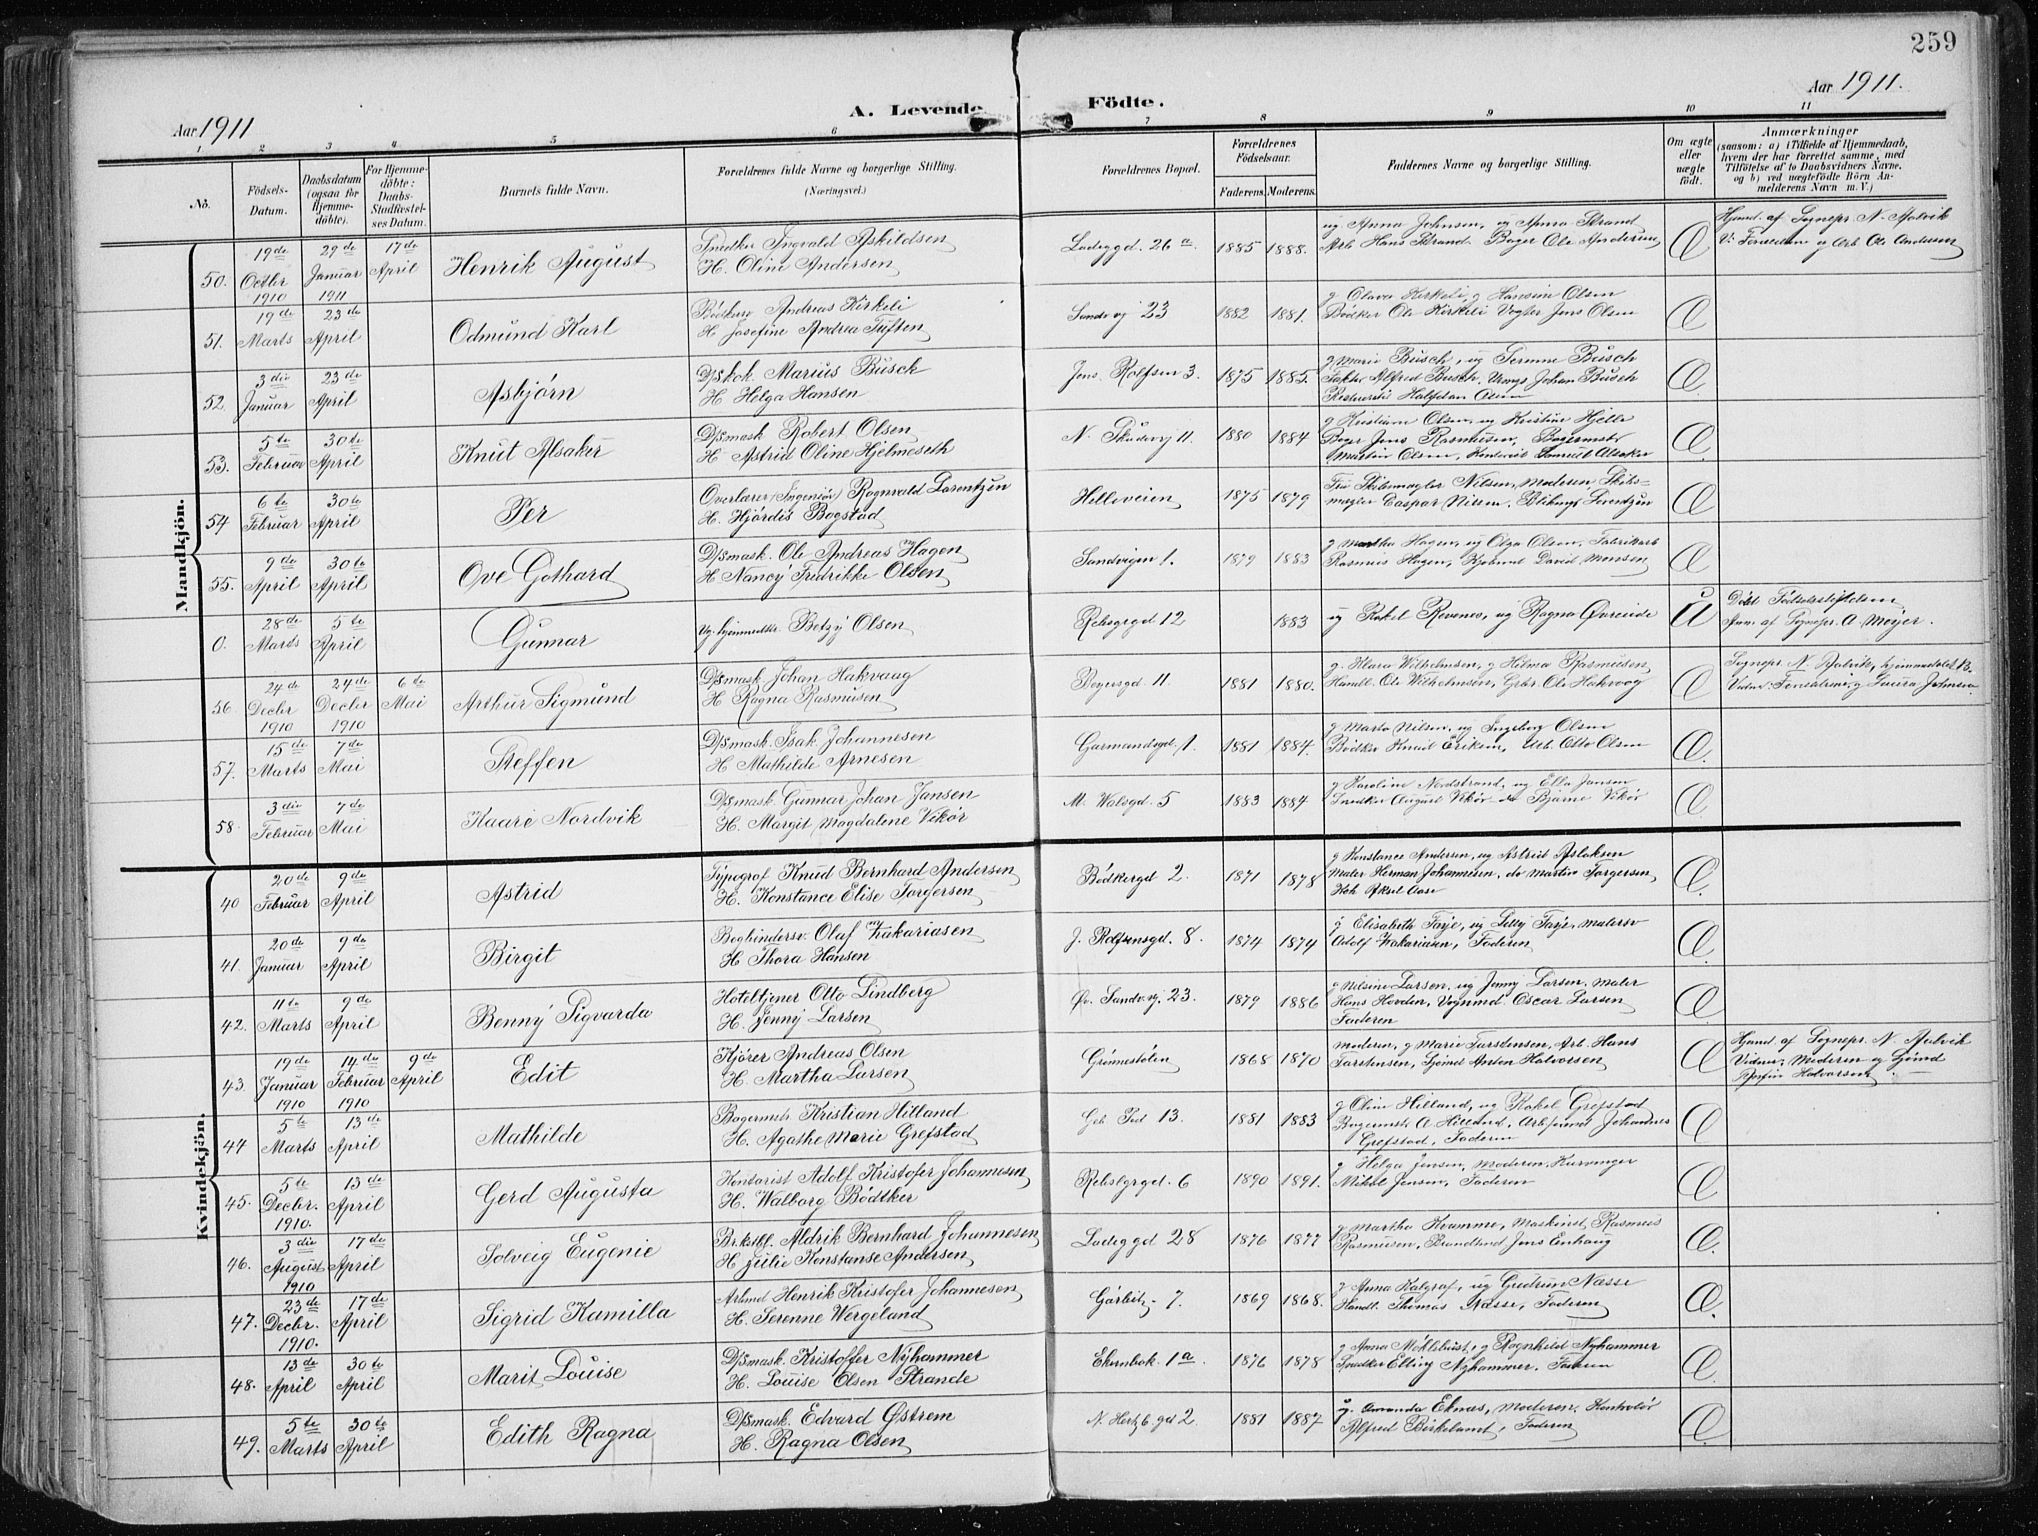 259
Aar 1911
A. Levende Födte.
Aar 1911.
1 2 3 4 5 6 7 8 9 10 11
No.
Födsels-Datum.
Daabsdatum (ogsaa for Hjemmedöbte).
For Hjemmedöbte: Daabs-Stadfæstelses Datum.
Barnets fulde Navn.
Forældrenes fulde Navne og borgerlige Stilling. (Næringsvei.)
Forældrenes Bopæl.
Forældrenes Födselsaar.
Faderens. Moderens.
Faddernes Navne og borgerlige Stilling.
Om ægte eller uægte födt.
Anmærkninger
(saasom: a) i Tilfælde af Hjemmedaab, hvem der har forrettet samme, med Tilföielse af to Daabsvidners Navne, og b) ved uægtefödte Börn Anmelderens Navn m. V.)
Mandkjön.
50. 19de Octbr 1910 29de Januar 1911 17de April Henrik August Snedker Ingvald Askildsen
H. Oline Andersen Ladeggd. 26a 1885 1888. ug Anna Johnsen, ug Anna Strand
Arb Hans Strand. Bager Ole Andersen Æ Hjemd. af Sognepr. N. Aalvik
V: Forældrene og Arb. Ole Andersen
51. 19de Marts 23de April Odmund Karl Bödker Andreas Kirkeli
H Josefine Andrea Tuften Sandvg 23 1882 1881. g Olava Kirkeli, g Hansine Olsen
Bödker Ole Kirkeli Vogter Jens Olsen Æ
52. 3die Januar 23de April Asbjørn D/skok. Marius Busch
H Helga Hansen Jens. Rolfsen 3. 1875 1885. g Marie Busch, ug Serenne Busch
Alfred Busch. Johan Busch
Halfdan Æ
53. 5te Februar 30te April Knut Alsaker D/smask Robert Olsen
H Astrid Oline Hjelmeseth N. Skudevg 11. 1880 1884 g Kristiane Olsen, ug Kristine Hjelle
Bager Jens Rasmussen, Bagermstr
Martin Olsen, Samuel Alsaker Æ
54 6te Februar 30te April Per Overlærer (Ingeniør) Ragnvald Lorentzen
H. Hjördis Bogstad Helleveien 1875 1879 Fru Skibsmægler Nilsen, Moderen Skibs-
mægler Caspar Nilsen, Lorentzen Æ
55. 9de April 30te April Ove Gothard D/smask. Ole Andreas Hagen
H Nancy Fredrikke Olsen Sandvigen 1. 1879 1883 g Martha Hagen, ug Olga Olsen, Fabrikarb
Rasmus Hagen, Kjøbmd David Monsen Æ
0. 28de Marts 5te April Gunnar Ug. hjemmedtr Betzy Olsen Rebsgrgd 12 1883 ug Rakel Revenes, ug Ragna Øvreeide U Døbt Fødselsstiftelsen
Anm. af Sognepr. A. Meyer.
56. 24de Decbr 1910 24de Decbr 1910 6te Mai Arthur Sigmund D/smask Johan Hakvaag
H Ragna Rasmusen Bøgesgd 11 1881 1880. g. Klara Wilhelmsen, g Hilma Rasmusen
Handl. Ole Wilhelmsen, Ole Hakvaag Æ Sognepr. N. Aalvik, hjemmedøbt B.
Vidner: Forældrene, g Johnsen
57. 15de Marts 7de Mai Steffen D/smask. Isak Johannesen
H Mathilde Arnesen Garmandsgd. 1. 1881 1884. g Marta Nilsen, ug Ingeborg Olsen
Bödker Knud Eriksen, Arb. Otto Olsen Æ
58. 3die Februar 7de Mai Kaare Nordvik D/smask. Gunnar Johan Jansen
H. Margit Magdalene Vikør M. Walsgd. 5 1883 1884 g Karoline Nordstrand, ug Ella Jansen
Snedker August Vikør do Bjarne Vikør Æ
Kvindekjön.
40 20de Februar 9de April Astrid Typograf Knud Bernhard Andersen
H. Konstance Elise Torgersen Bödkergd 2. 1871 1878 g Konstance Andersen, ug Astrid Aslaksen
Maler Herman Johannesen, do Martin Torgersen, Kok Aksel Aase Æ
41. 20de Januar 9de April Birgit Bogbindersv. Olaf Zakariasen
H Thora Hansen J. Rolfsensgd. 8. 1874 1874 g Elisabeth Faye, ug Lilly Faye, Malersv
Adolf Zakariasen, Faderen Æ
42. 11te Marts 9de April Benny Sigvarda Hoteltjener Otto Lindberg
H. Jenny Larsen Øv. Sandv.vg. 23. 1879 1886 g Nilsine Larsen, ug Jenny Larsen, Maler
Hans Hovden, Vognmd Oscar Larsen
Faderen Æ
43. 19de Januar 1910 14de Februar 1910 9de April Edit Kjører Andreas Olsen
H. Martha Larsen Grønnestølen 1868 1870 Moderen, g Marie Tarstensen, Arb. Hans
Tarstensen, Sjømd Anton Halvorsen Æ Hjemd. af Sognepr. N. Aalvik
Vidner: Moderen og Sjømd
Halvorsen
44 5te Marts 13de April Mathilde Bagermstr. Kristian Hilland
H. Agathe Marie Grefstad 13. 1881 1883 g Oline Hilland, ug Rakel Grefstad
Bagermstr A. Hilland, Johannes
Grefstad, Faderen Æ
45. 5te Decbr. 1910. 13de April Gerd Augusta Kontorist Adolf Kristofer Johannesen
H. Walborg Bødtker Rebslgrgd. 6 1890 1891. g Helga Jensen, Moderen, Kurvinger
Mikal Jensen, Faderen Æ
46. 3die August 1910 17de April Solveig Eugenie Brkstbf. Aldrik Bernhard Johannesen
H Julie Konstanse Andersen Ladeggd 28 1876 1877 g Martha Kvamme, Maskinist Rasmus
Rasmusen, Jens Enhaug Æ
47. 23de Decbr. 1910. 17de April Sigrid Kamilla Arbmd Henrik Kristofer Johannesen
H. Serenne Wergeland Gørbitz. 7. 1869 1868. g Anna Kalgraf, ug Gudrun Næsse
Handl. Thomas Næsse, Faderen Æ
48. 13de April 30te April Marit Louise D/smask. Kristoffer Nyhammer
H. Louise Olsen Strande Ekernbok. 1a. 1876 1878 g Anna g Ragnhild Nyhammer
Snedker Elling Nyhammer. Faderen Æ
49. 5te Marts 30te April Edith Ragna D/smask. Edvard Østrem
H. Ragna Olsen N. Hertzbgd 2. 1881 1887 ug. Amanda Eknæs, Moderen. Kontorist
Alfred Birkeland, Faderen Æ